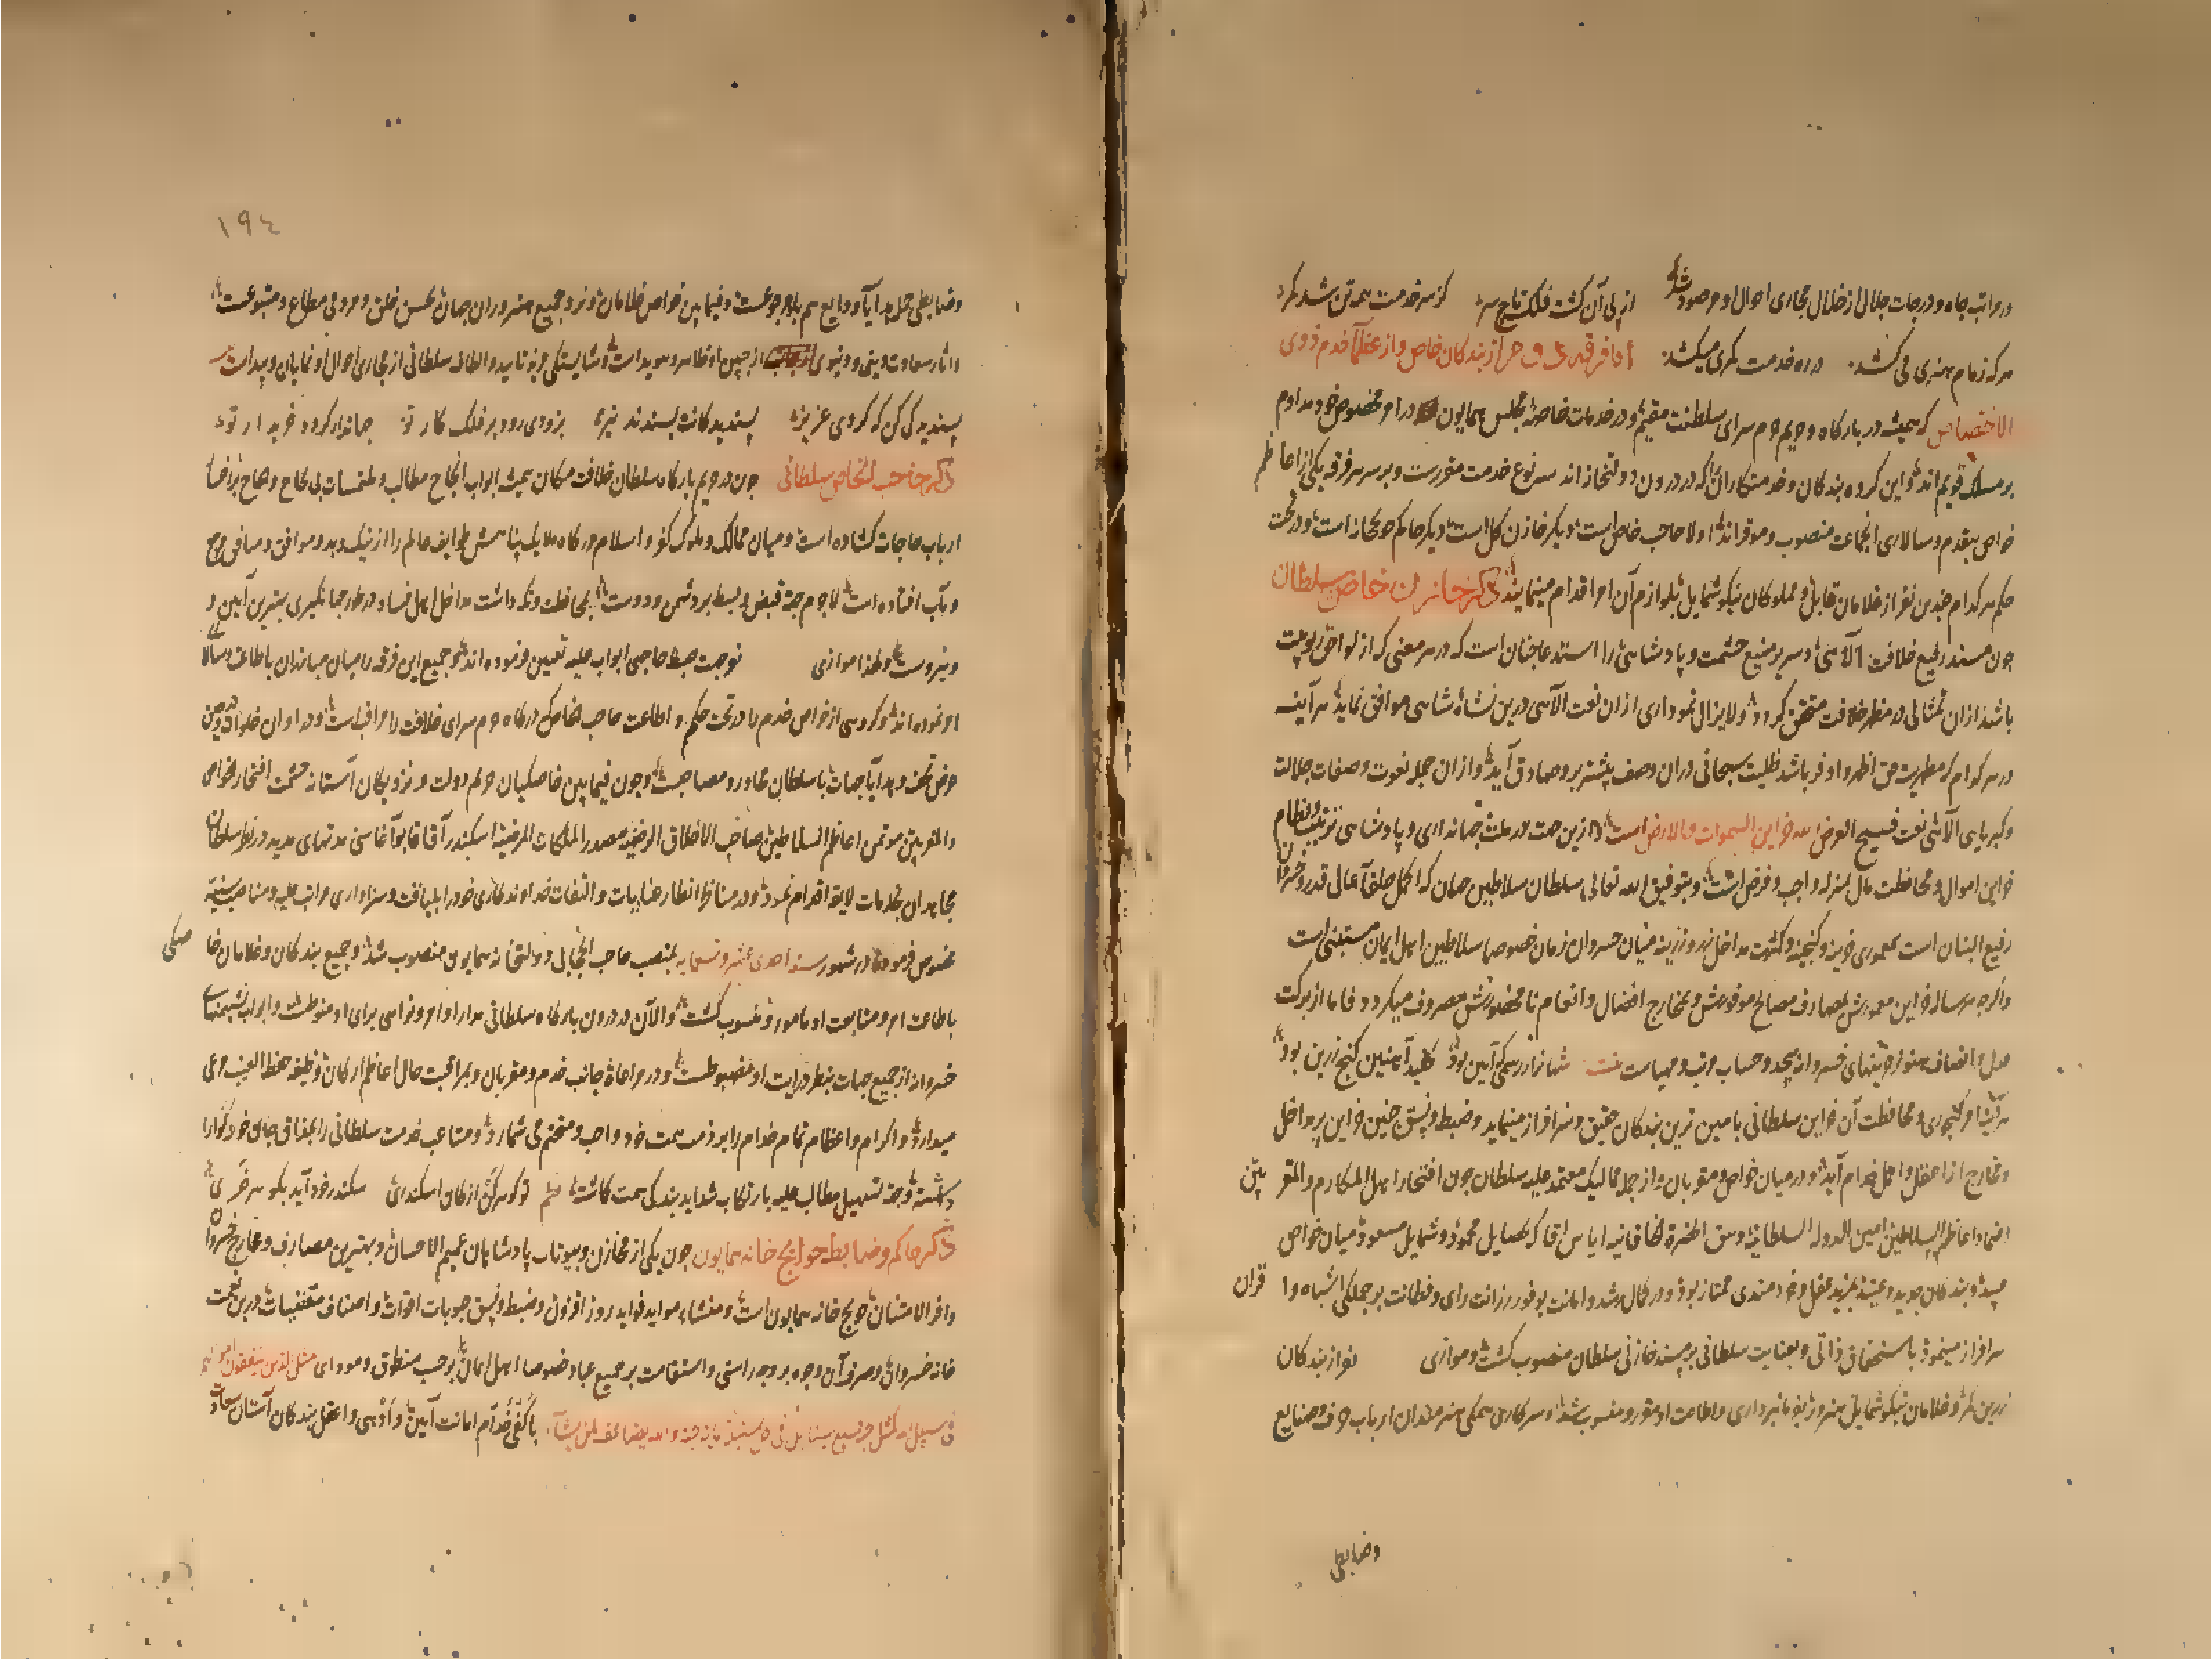 در مراتب جاه و درجات جلال از خلال مجاری احوال او مرصود شد
از پی آن گشت فلک تاج سر کز سر خدمت همه تن شد کمر
هر که زمام هنری می کشد در ره خدمت کمری میکشد
اما فرقه از بندکان خاص و از عظمآء خدم ذوی
الاختصاص که همیشه در بارکاه و حریم حرم سرای سلطنت مقیم و در خدمات خاصه مجلس همایون در امر مخصوص خود مداوم
بر مسلک قویم اند و این کروه بندکان و خدمتکاران که در درون دولتخانه اند سه نوع خدمت مقررست و بر سر هر فرقه یکی از اعاظم
خواص بتقدم و سالاری انجماعت منصوب و موقراند اولا حاجب خاص است دیکر خازن کل است دیکر حاکم حویجخانه است و در تحت
حکم هر کدام چندین نفر از غلامان قابل و مملوکان نیکو شمایل بلوازم آن امر اقدام مینمایند ذکر خازن خاص سلطان
چون مسند رفیع خلافت الآهی و سریر منیع حشمت و پادشاهی را استدعا چنان است که در هر معنی که از لواحق ربوبیت
باشد از ان تمثالی در مظهر خلافت متحقق کردد و لا یزال نموداری از ان نعت الآهی درین نشاه شاهی موافق نماید هر آینه
در هر کدام که مظهریت حق اظهر و اوفر باشد ظلیت سبحانی دران وصف بیشتر برو صادق آید و از ان جمله نعوت و صفات جلالت
و کبریای الآهی نعت فسیح العرض لله خزاین السموات والارض است و ازین جهت در ملت جهانداری و پادشاهی ترتیب و نظام
خزاین اموال و محافظت مال بمنزله واجب و فرض است و بتوفیق الله تعالی سلطان سلاطین جهان که اکمل خلفآء عالی قدر و خسروان
رفیع البنان است بمعموری خزینه و کنجینه و کثرت مداخل نقد و زرینه میان خسروان زمان خصوصا سلاطین اهل ایمان مستغنی است
و اکرچه هر ساله خزاین معمورش بمصارف مصالح موفورش و بمخارج افضال و انعام نا محصورش مصروف میکردد فاما از برکت
عدل و انصاف هنوز خزینهای خسروانه بیحد و حساب مرتب و مهیاست بیت شهانرا رسمکی آیین بود کلید آهنین کنج زرین بود
هر آینه امر کنجوری و محافظت آن خزاین سلطانی بامین ترین بندکان حقیق و سرافراز مینماید و ضبط و نسق چنین خزاین پر مداخل
و مخارج از اعقل و اکمل خدام آید و در میان خواص و مقربان و از جمله ممالیک معتمد علیه سلطان چون افتخار اهل المکارم والمقربین
اعتماد اعاظم السلاطین امین الدوله السلطانیه وسق الحضرة الخاقانیه ایاس اقا که بخصایل محمود و شمایل مسعود میان خواص
عبید و بندکان جدید و عتید بمزید عقل و خردمندی ممتاز بود و در کمال رشد و امانت بوفور رزانت رای و فطانت بر جملکی اشباه و اقران
سرافراز مینمود باستحقاق ذاتی و بعنایت سلطانی بر مسند خازنی سلطان منصوب کشت و موازی نفر از بندکان
زرین کمر و غلامان نیکو شمایل هنرور بفرمانبرداری و اطاعت او مقرر و منسوب شد و سرکاری همکی هنرمندان ارباب حرف و صنایع
و ضابطی
١٩٤
و ضابطی جمله هدایا و ودایع هم باو مرجوعست و فیما بین خواص غلامان و نزد جمیع هنروران جهان بحسن خلق و مردمی مطاع و متبوعست
و اثار سعادت دینی و دنیوی از جبین او ظاهر و هویداست و شایستکی مزید تایید و الطاف سلطانی از مجاری احوال او نمایان و پیداست
پسندیدکی کن که کردی عزیز پسندیدکانت پسندند نیز بزودی رود بر فلک کار تو جهاندار کردد خریدار تو
ذکر حاجب الخاص سلطانی چون در حریم بارکاه سلطان خلافت مکان همیشه ابواب انجاح مطالب و ملتمسات بی لجاج و الحاح بر رخسار
ارباب حاجات کشاده است و میان ممالک و ملوک کفر و اسلام درکاه ملایک پناهش طوایف عالم را از نیک و بد و موافق و منافق مرجع
و مآب افتاده است لاجرم جهة قبض و بسط بر دشمن و دوست محافظت و نکه داشت مداخل اهل فساد در طور جهانکیری بهترین آیین و
و نیروست و لهذا موازی نوبت ضبط حاجبی ابواب علیه تعیین فرموده اند و جمیع این فرقه را میان میانداران باطاعت و سالا
او نموده اند و کروهی از خواص خدم را در تحت حکم و اطاعت حاجب الخاص که درکاه حرم سرای خلافت را مراقب است و در اوان خلوات و در حین
عرض تحف و هدایآ جهات با سلطان محاور و مصاحبست و چون فیما بین خاصکیان حریم دولت و نزدیکان آستانه حشمت افتخار الخواص
والمقربین موتمن اعاظم السلاطین صاحب الاخلاق الرضیه مصدر الملکات المرضیة اسکندر آقا قاپوآغاسی مدتهای مدید در نظر سلطان
مجاهدان بخدمات لایقه اقدام نمود و در مناظر انظار عنایات و التفات خداوندکاری خود را بلیاقت و سزاواری مراتب علیه و مناصب سنیه
مخصوص فرمود در شهور سنه احدی عشر و تسعمایه بمنصب حاجب الحجابی دولتخانه همایون منصوب شد و جمیع بندکان و غلامان خاصکی
باطاعت امر و متابعت او مامور و منسوب کشت و الآن در درون بارکاه سلطانی مدار اوامر و نواهی برای او منوطست و ابواب نشیمنهای
خسروانه از جمیع جهات بنظر درایت او مضبوطست و در مراعاة جانب خدم و مقربان و بمراقبت حال اعاظم ارکان وظیفه حفظ الغیب مرعی
میدارد و اکرام و اعظام تمام خدام را بر ذمت همت خود واجب و متحتم می شمارد و متاعب خدمت سلطانی را بمذاق جان خود کوارا
داشته و جهة تسهیل مطالب علیه بارتکاب شداید بندکی همت کماشته نظم تو کوهر کنی از کان اسکندری سکندر خود آید بکوهر خری
ذکر حاکم و ضابط حوایج خانه همایون چون یکی از مخازن و بیوتات پادشاهان عمیم الاحسان و بهترین مصارف و مخارج خسروان
وافر الامتنان حویج خانه همایون است و منشاء مواید فواید روز افزون و ضبط و نسق حبوبات اقوات و اصناف مقتنیات درین تحت
خانه خسروانی و صرف آن وجوه بر وجه راستی و استقامت بر جمیع عباد خصوصا اهل ایمان بر حسب منطوق و مودای مثل الذین ینفقون اموالهم
فی سبیل الله کمثل حبة انبتت سبع سنابل فی کل سنبلة مایة حبة والله یضاعف لمن یشآء باکفی خدام امانت آیین و ازهی و اعقل بندکان آستان سعادت